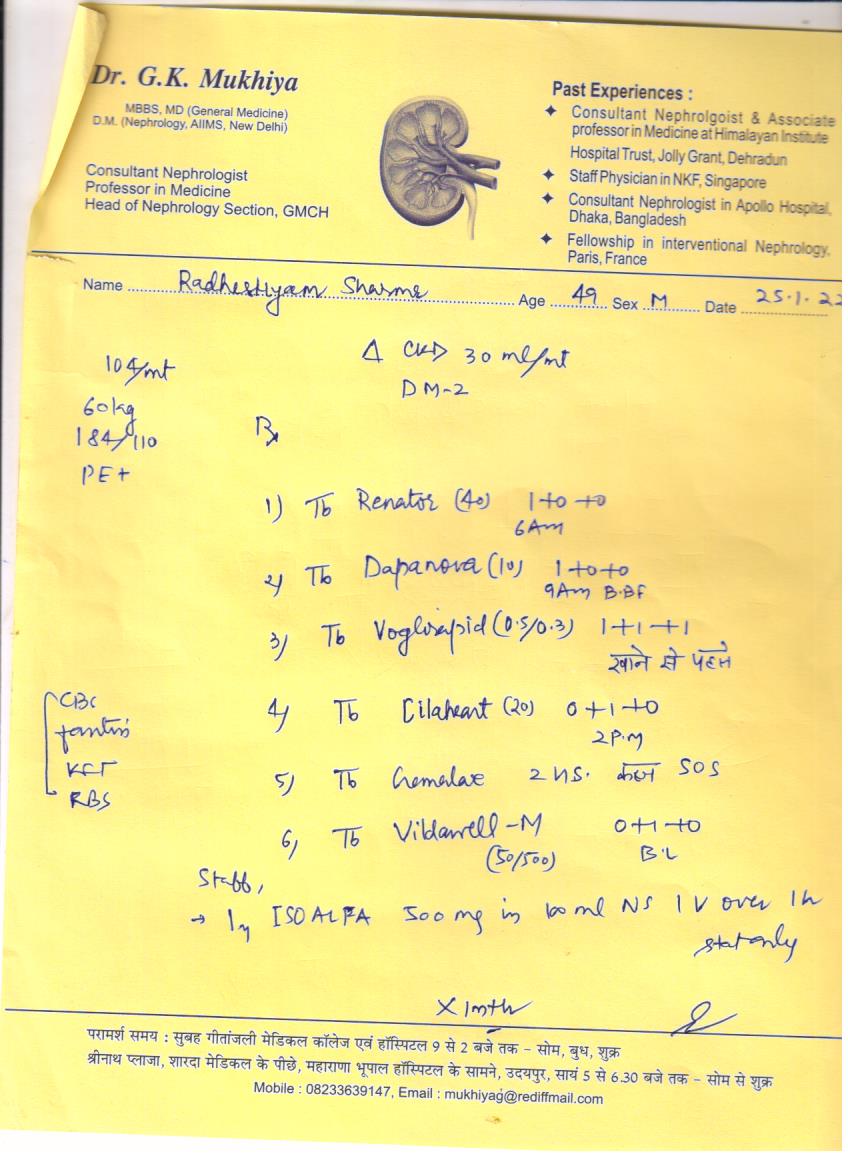 Dr. G.K. Mukhiya
MBBS, MD (General Medicine)
D.M. (Nephrology, AIIMS, New Delhi)
Consultant Nephrologist
Professor in Medicine
Head of Nephrology Section, GMCH
Past Experiences :
✦ Consultant Nephrolgoist & Associate
professor in Medicine at Himalayan Institute
Hospital Trust, Jolly Grant, Dehradun
✦ Staff Physician in NKF, Singapore
✦ Consultant Nephrologist in Apollo Hospital,
Dhaka, Bangladesh
✦ Fellowship in interventional Nephrology,
Paris, France
Name Radheshyam Sharma Age 49 Sex M Date 25.1.22
104/mt
60kg
184/110
PE+
Δ CKD 30 ml/mt
DM-2
Rx
1) Tb Renator (40) 1+0+0
6Am
2) Tb Dapanova (10) 1+0+0
9Am B.BF
3) Tb Voglirapid (0.5/0.3) 1+1+1
खाने से पहले
4) Tb Cilaheart (20) 0+1+0
2P.M
5) Tb Cremalax 2 HS. कब्ज SOS
6) Tb Vildawell-M 0+1+0
(50/500) B.L
CBC
KFT
RBS
Staff,
→ Inj ISOALFA 500 mg in 100 ml NS IV over 1h
stat only
X 1mth
परामर्श समय : सुबह गीतांजली मेडिकल कॉलेज एवं हॉस्पिटल 9 से 2 बजे तक – सोम, बुध, शुक्र
श्रीनाथ प्लाजा, शारदा मेडिकल के पीछे, महाराणा भूपाल हॉस्पिटल के सामने, उदयपुर, सायं 5 से 6.30 बजे तक – सोम से शुक्र
Mobile : 08233639147, Email : mukhiyag@rediffmail.com